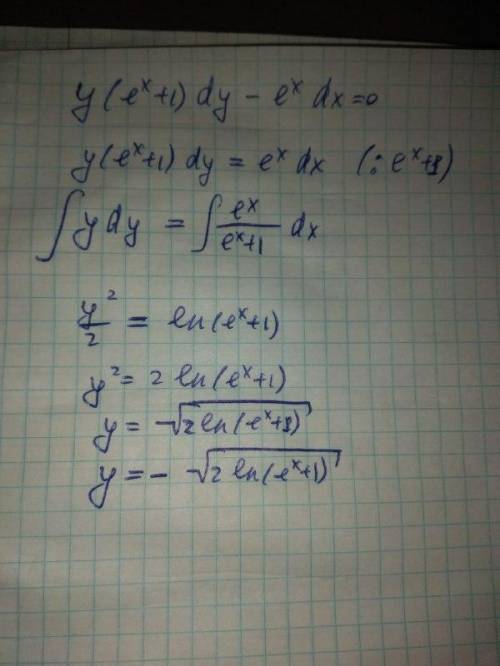 y(eˣ+1) dy − eˣ dx=0
y(eˣ+1) dy = eˣ dx (: eˣ+1)
∫ y dy = ∫ eˣ/(eˣ+1) dx
y²/2 = ln(eˣ+1)
y² = 2 ln(eˣ+1)
y = √(2 ln(eˣ+1))
y = − √(2 ln(eˣ+1))